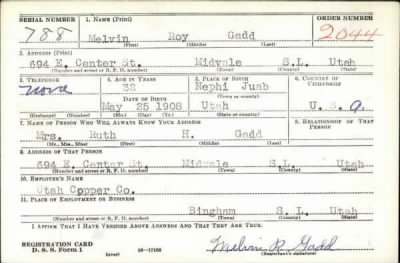 SERIAL NUMBER 1. NAME (Print) ORDER NUMBER
788 Melvin Roy Gadd 2044
(First) (Middle) (Last)
2. ADDRESS (Print)
694 E. Center St. Midvale S.L. Utah
(Number and street or R. F. D. number) (Town) (County) (State)
3. TELEPHONE 4. AGE IN YEARS 5. PLACE OF BIRTH 6. COUNTRY OF CITIZENSHIP
none 32 Nephi Juab
(Town or county)
DATE OF BIRTH
May 25 1908 Utah U. S. A.
(Mo.) (Day) (Yr.) (State or country)
7. NAME OF PERSON WHO WILL ALWAYS KNOW YOUR ADDRESS 8. RELATIONSHIP OF THAT PERSON
Mrs. Ruth H. Gadd
(Mr., Mrs., Miss) (First) (Middle) (Last)
9. ADDRESS OF THAT PERSON
694 E. Center St. Midvale S.L. Utah
(Number and street or R. F. D. number) (Town) (County) (State)
10. EMPLOYER'S NAME
Utah Copper Co.
11. PLACE OF EMPLOYMENT OR BUSINESS
Bingham S. L. Utah
(Number and street or R. F. D. number) (Town) (County) (State)
I AFFIRM THAT I HAVE VERIFIED ABOVE ANSWERS AND THAT THEY ARE TRUE.
REGISTRATION CARD
D. S. S. Form 1 (over) 16—17105 Melvin R Gadd
(Registrant's signature)